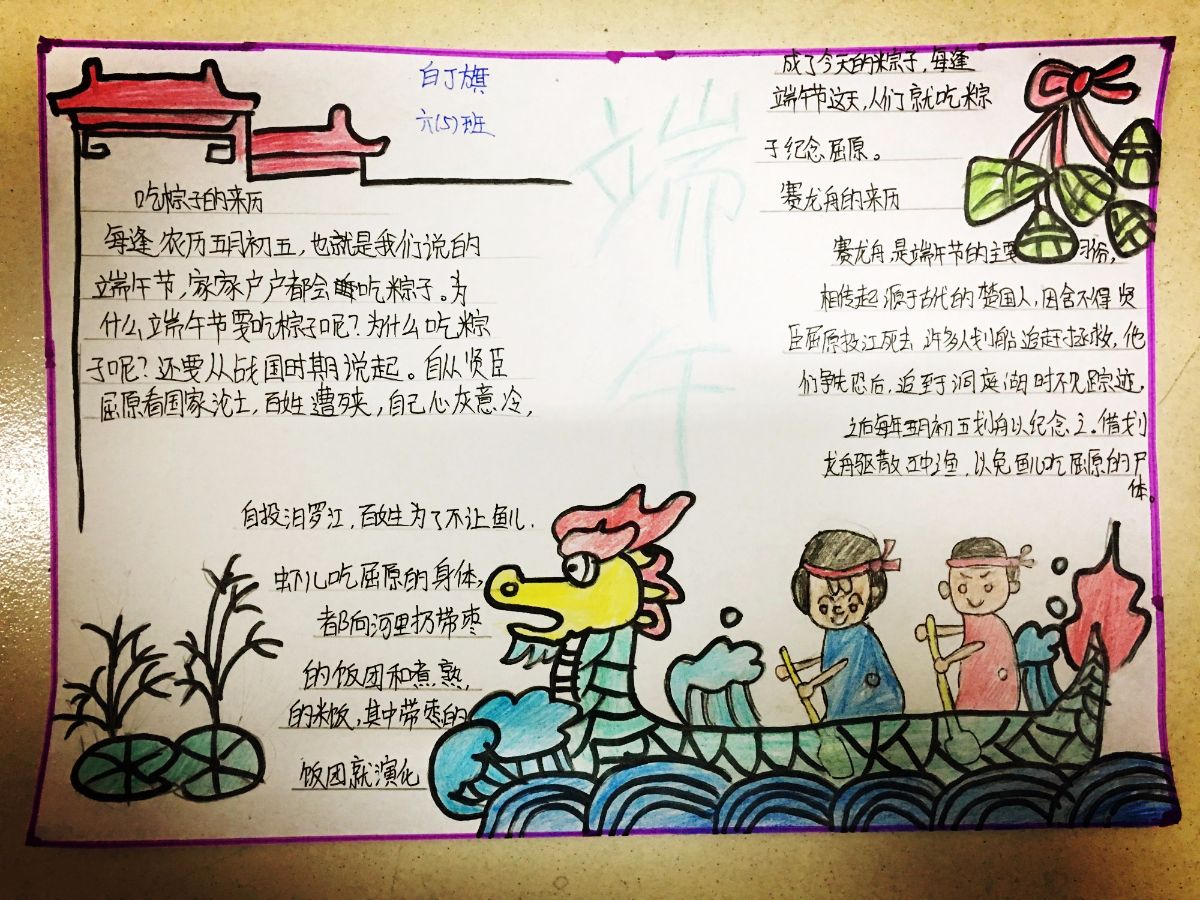 白丁旗
六(5)班
端午
吃粽子的来历
每逢农历五月初五，也就是我们说的
端午节，家家户户都会吃粽子。为
什么端午节要吃粽子呢？为什么吃粽
子呢？还要从战国时期说起。自从贤臣
屈原看国家沦土，百姓遭殃，自己心灰意冷，
自投汨罗江，百姓为了不让鱼儿，
虾儿吃屈原的身体，
都向河里扔带枣
的饭团和煮熟，
的米饭，其中带枣的
饭团就演化
成了今天的粽子，每逢
端午节这天，人们就吃粽
子纪念屈原。
赛龙舟的来历
赛龙舟，是端午节的主要习俗，
相传起源于古代的楚国人，因舍不得贤
臣屈原投江死去，许多人划船追赶拯救，他
们争先恐后，追至洞庭湖时不见踪迹，
之后每年五月初五划舟以纪念之。借划
龙舟驱散江中渔，以免鱼儿吃屈原的尸
体。